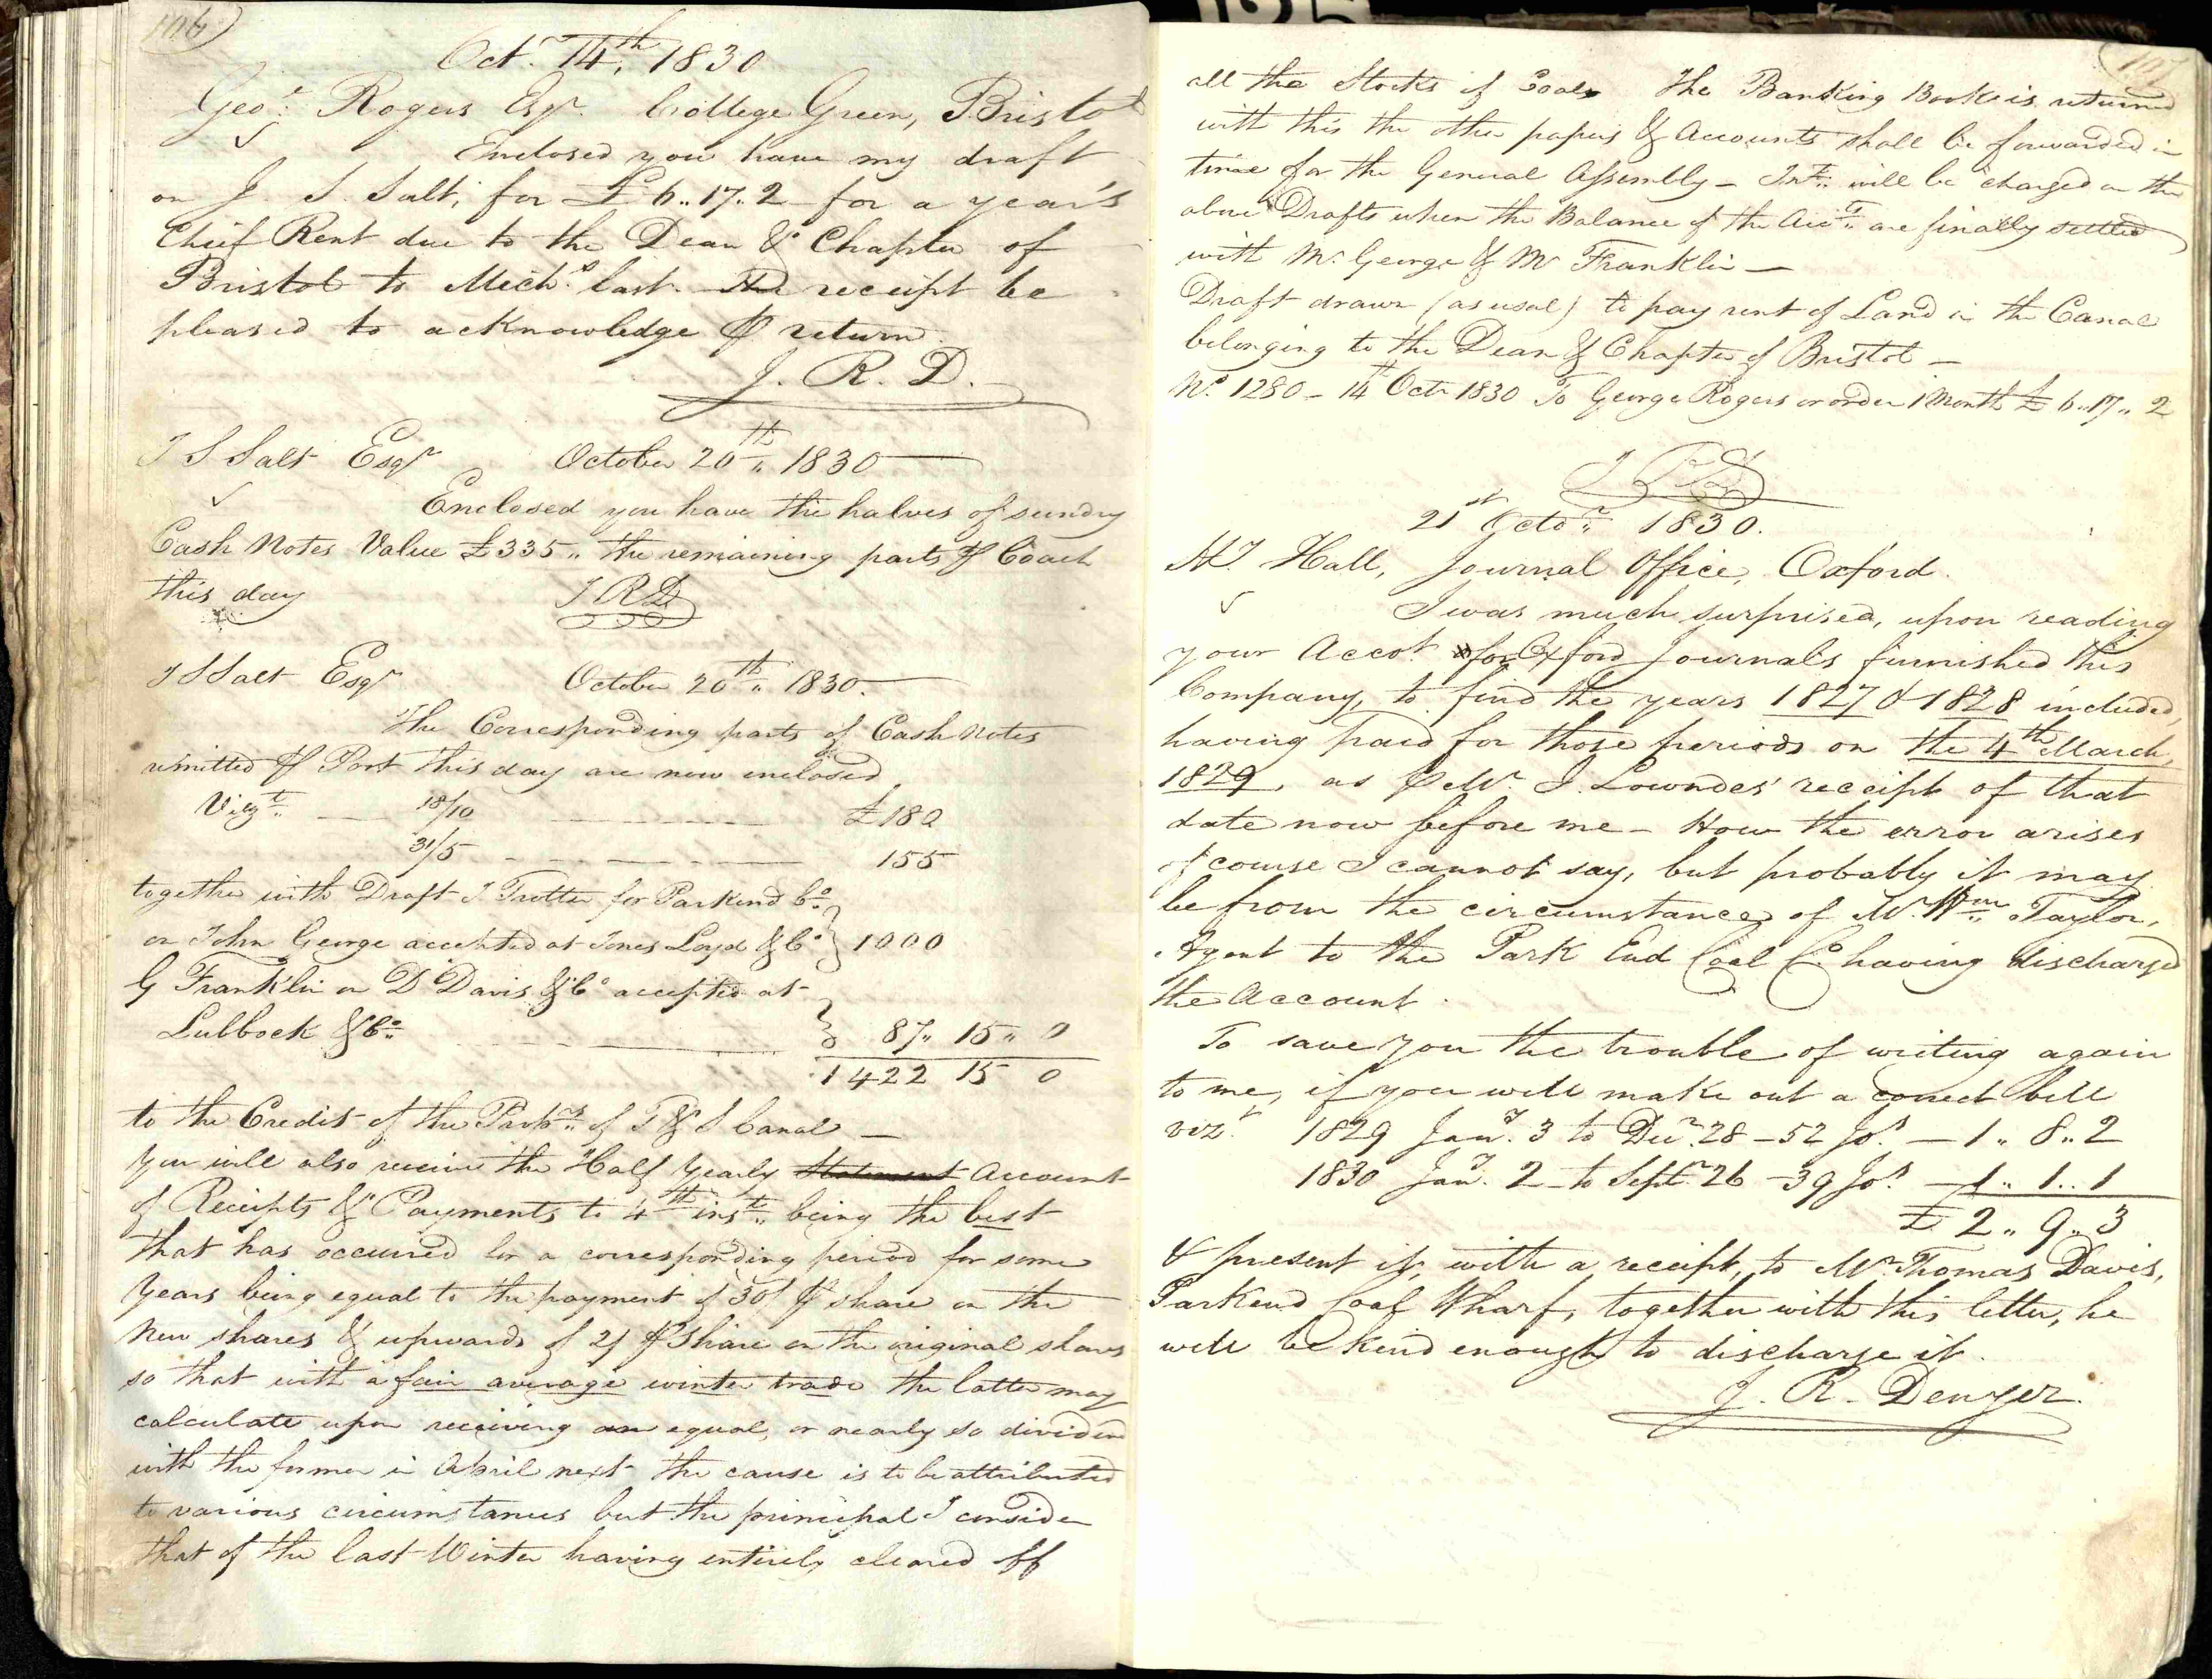 106
Octr. 14th, 1830
Geo: Rogers Esqr. College Green, Bristol
Enclosed you have my draft
on J. S. Salt, for £6..17..2 for a year's
Chief Rent due to the Dean & Chapter of
Bristol to Michs. last. The receipt be
pleased to acknowledge & return.
J. R. D.
J S Salt Esqr October 20th 1830
Enclosed you have the halves of sundry
Cash Notes Value £335.. the remaining parts ⅌ Coach
this day J R D
J S Salt Esqr October 20th 1830.
The Corresponding parts of Cash Notes
remitted ⅌ Post this day are now enclosed
Vizt. 18/10 £180
31/5 155
together with Draft J Trotter for Parkend Co.
on John George accepted at Jones Loyd & Co. } 1000
G Franklin on D Davis & Co accepted at
Lubbock & Co. } 87.. 15.. 0
1422 15 0
to the Credit of the Proprs. of T & S Canal —
You will also receive the Half Yearly Statement Account
of Receipts & Payments to 4th inst. being the best
that has occurred for a corresponding period for some
Years being equal to the payment of 30/ ⅌ share on the
New shares & upwards of 2/ ⅌ Share on the original shares
so that with a fair average winter trade the latter may
calculate upon receiving an equal, or nearly so dividend
with the former in April next the cause is to be attributed
to various circumstances but the principal I consider
that of the last Winter having entirely cleared off
107
all the Stocks of Coal. The Banking Book is returned
with this the other papers & Accounts shall be forwarded in
time for the General Assembly — Intt. will be charged on the
above Drafts when the Balance of the Accts. are finally settled
with Mr. George & Mr Franklin —
Draft drawn (as usual) to pay rent of Land in the Canal
belonging to the Dean & Chapter of Bristol —
No. 1280 — 14th Octr 1830 To George Rogers or order 1 Month £6..17.. 2
J R D
21st Octor. 1830.
Hall, Journal Office, Oxford.
I was much surprised, upon reading
your Accot. for Oxford Journals furnished this
Company, to find the years 1827 & 1828 included,
having paid for those periods on the 4th March,
1829, as ⅌ Mr. J. Lowndes' receipt of that
date now before me — How the error arises
of course I cannot say, but probably it may
be from the circumstance of Mr. Wm. Taylor,
Agent to the Park End Coal Co having discharged
the Account.
To save you the trouble of writing again
to me, if you will make out a correct bill
viz. 1829 Jany. 3 to Decr. 28 — 52 Jos. — 1.. 8.. 2
1830 Jany. 2 to Septr. 26 — 39 Jos. — 1.. 1.. 1
£ 2.. 9.. 3
& present it, with a receipt, to Mr. Thomas Davis,
Parkend Coal Wharf, together with this letter, he
will be kind enough to discharge it.
J. R. Denyer.